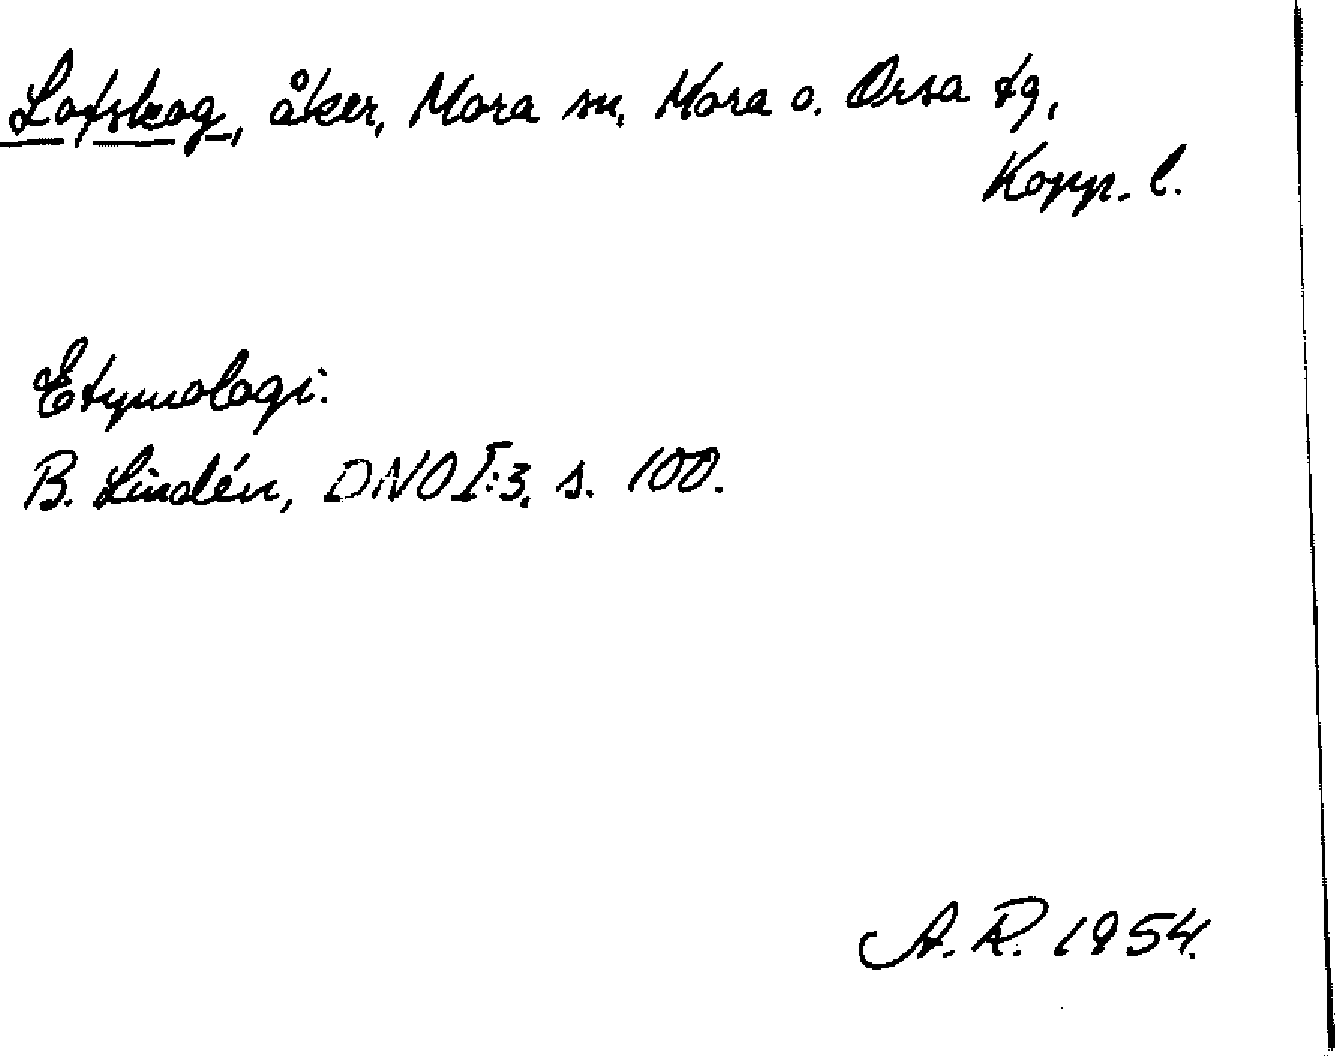 Lotskog, åker, Mora sn, Mora o. Orsa tg,
Kopp. l.
Etymologi:
B. Lindén, DNO I:3, s. 100.
A. R. 1954.